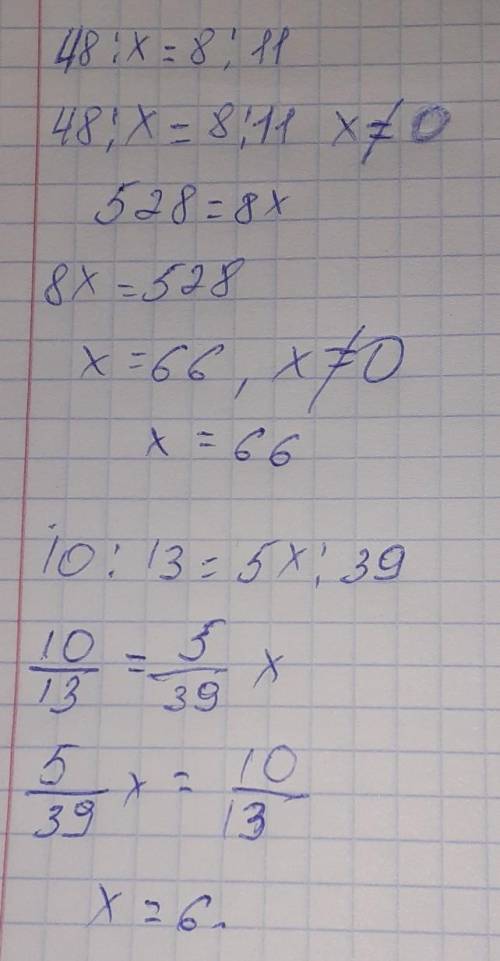 48:x=8:11
48:x=8:11 x≠0
528=8x
8x=528
x=66, x≠0
x=66
10:13=5x:39
10/13=5/39 x
5/39 x=10/13
x=6.